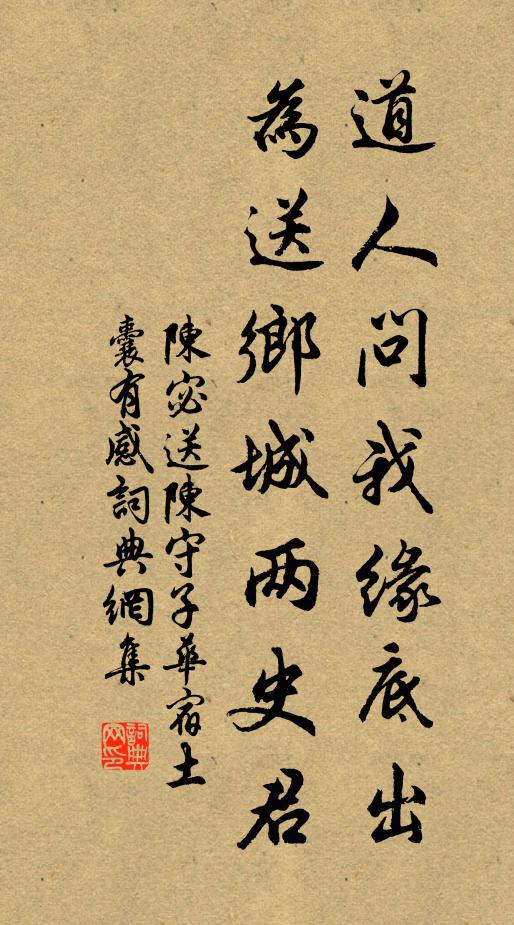 道人問我緣底出
為送鄉城两史君
陳宓送陳守子華宿土
囊有感詞典網集
詞典网印